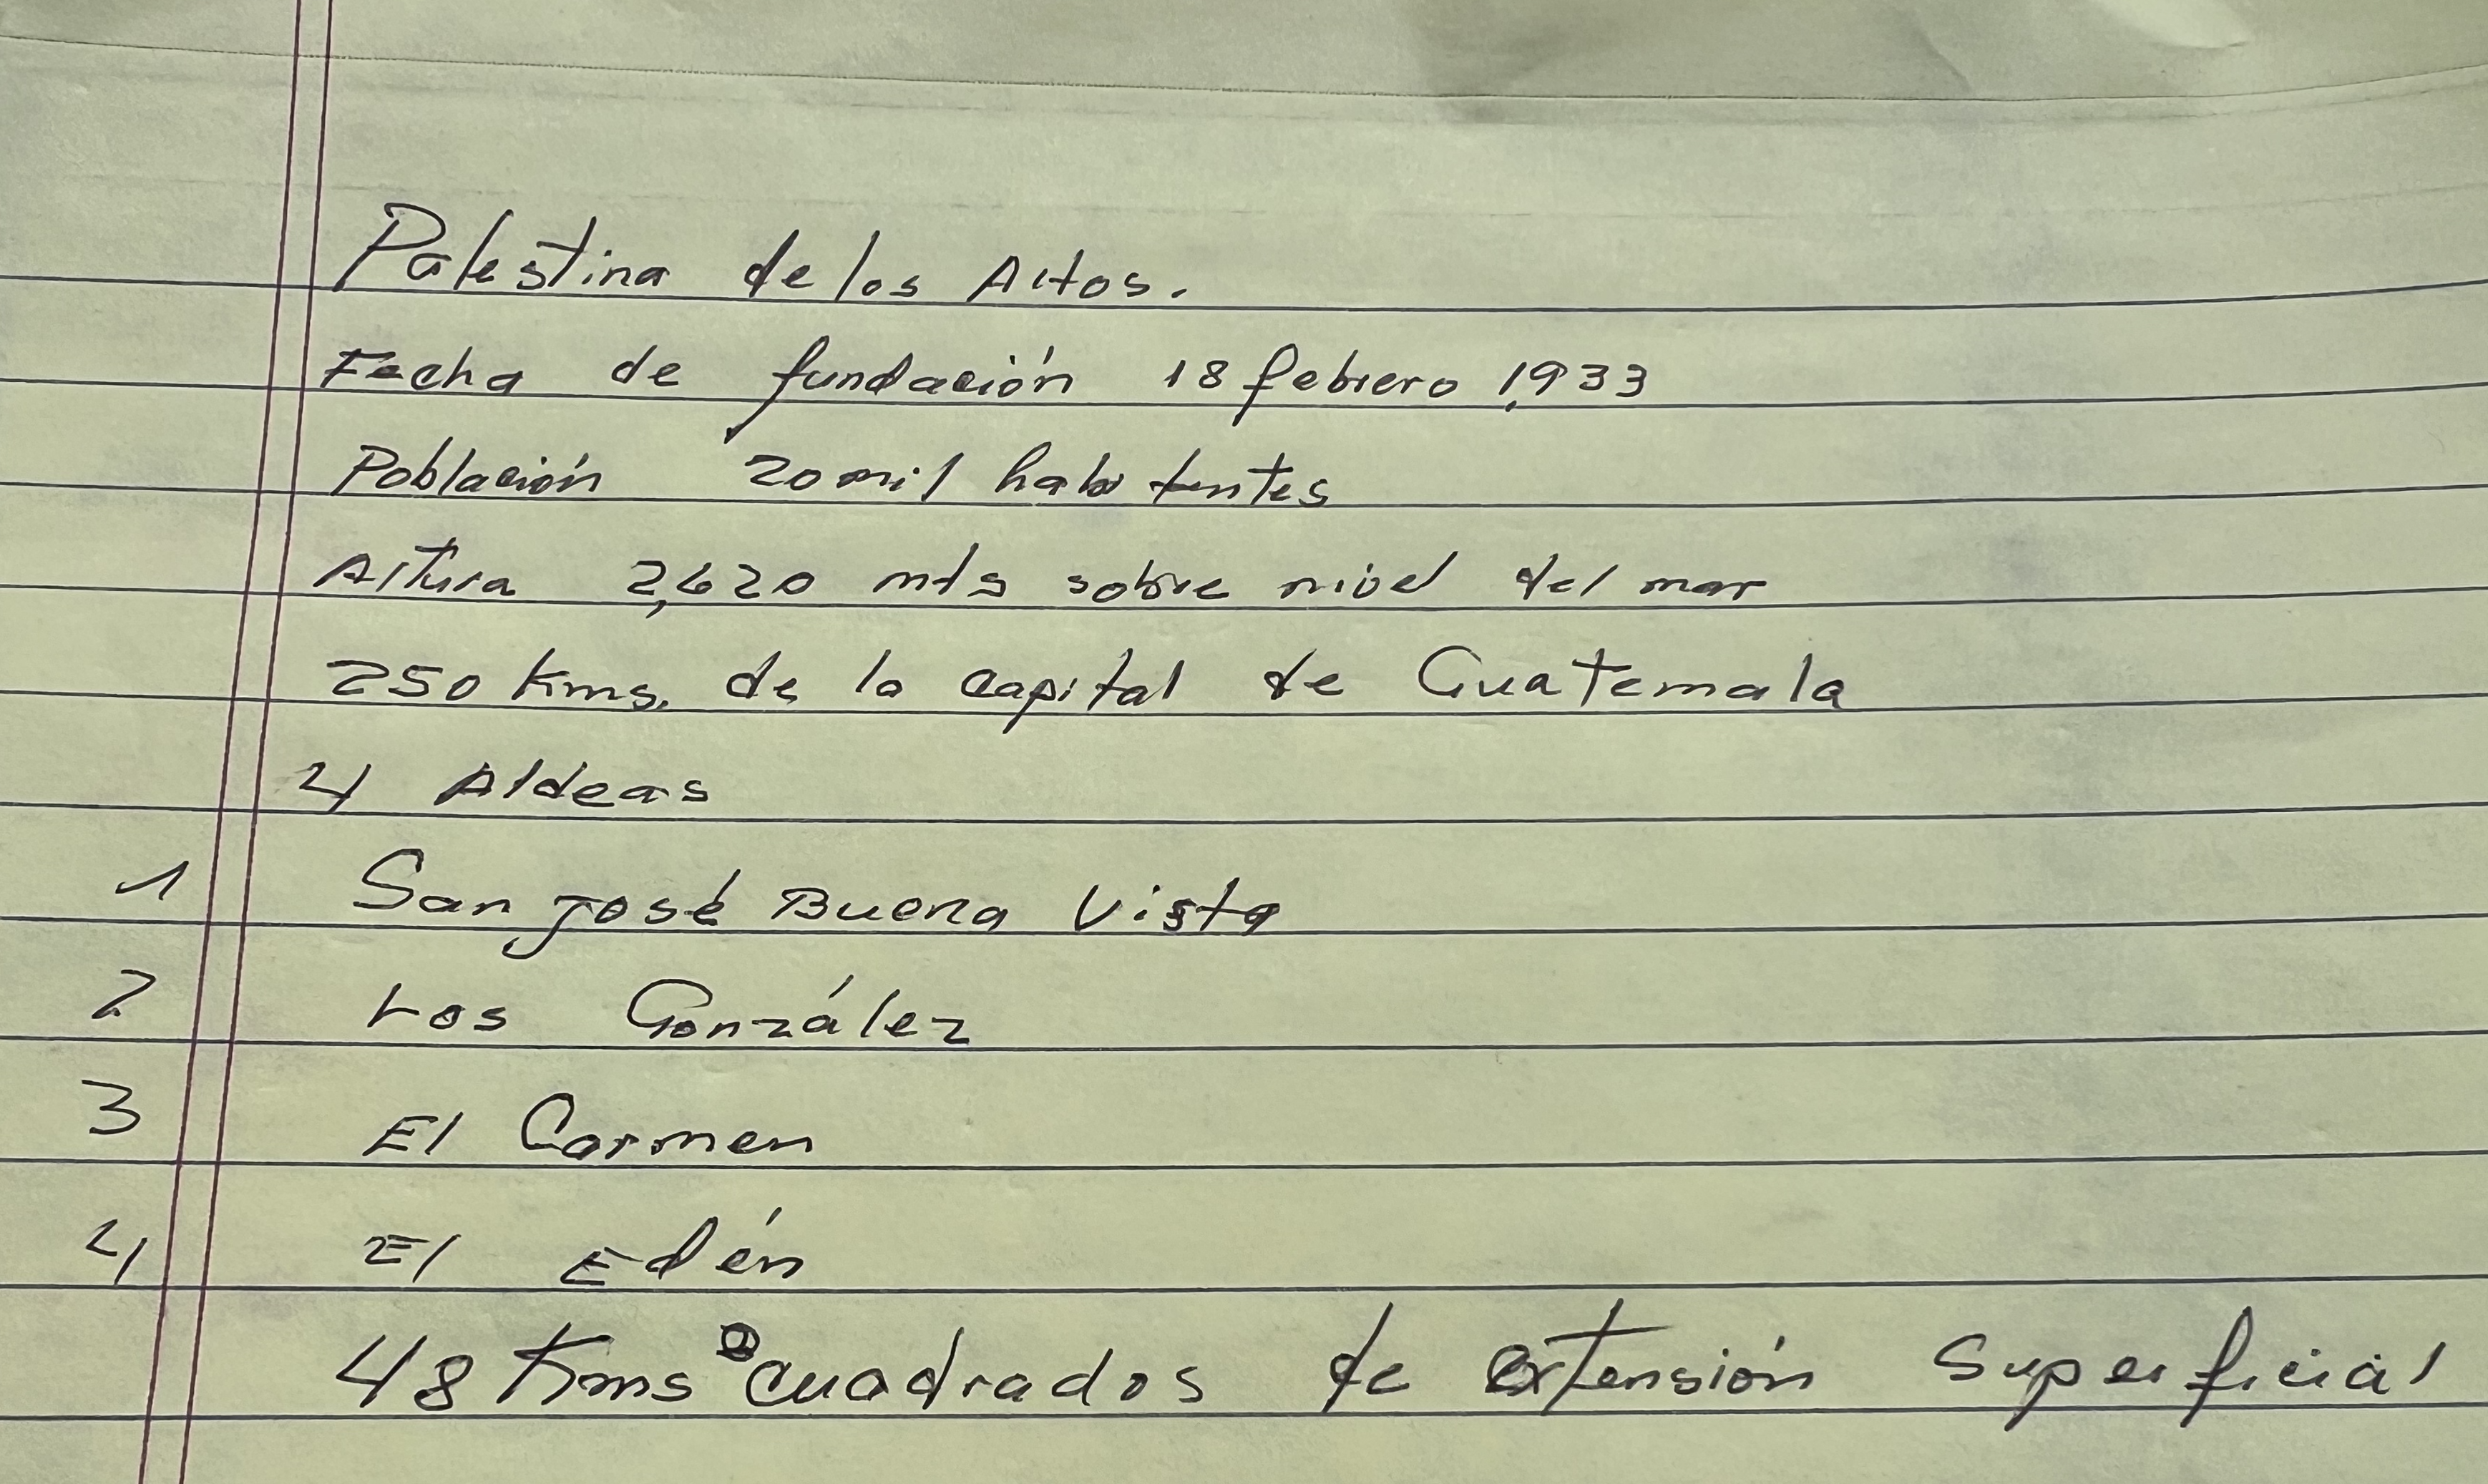 Palestina de los Altos.
Fecha de fundación 18 febrero 1,933
Población 20 mil habitantes
Altura 2,620 mts sobre nivel del mar
250 Kms. de la capital de Guatemala
4 Aldeas
1 San José Buena Vista
2 Los González
3 El Carmen
4 El Edén
48 Kms cuadrados de extensión superficial